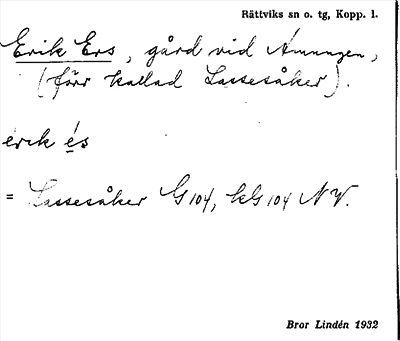 Rättviks sn o. tg, Kopp. l.
Erik Ers, gård vid Amungen,
(förr kallad Lassesåker).
erik és
= Lassesåker G 104, kG 104 NV.
Bror Lindén 1932